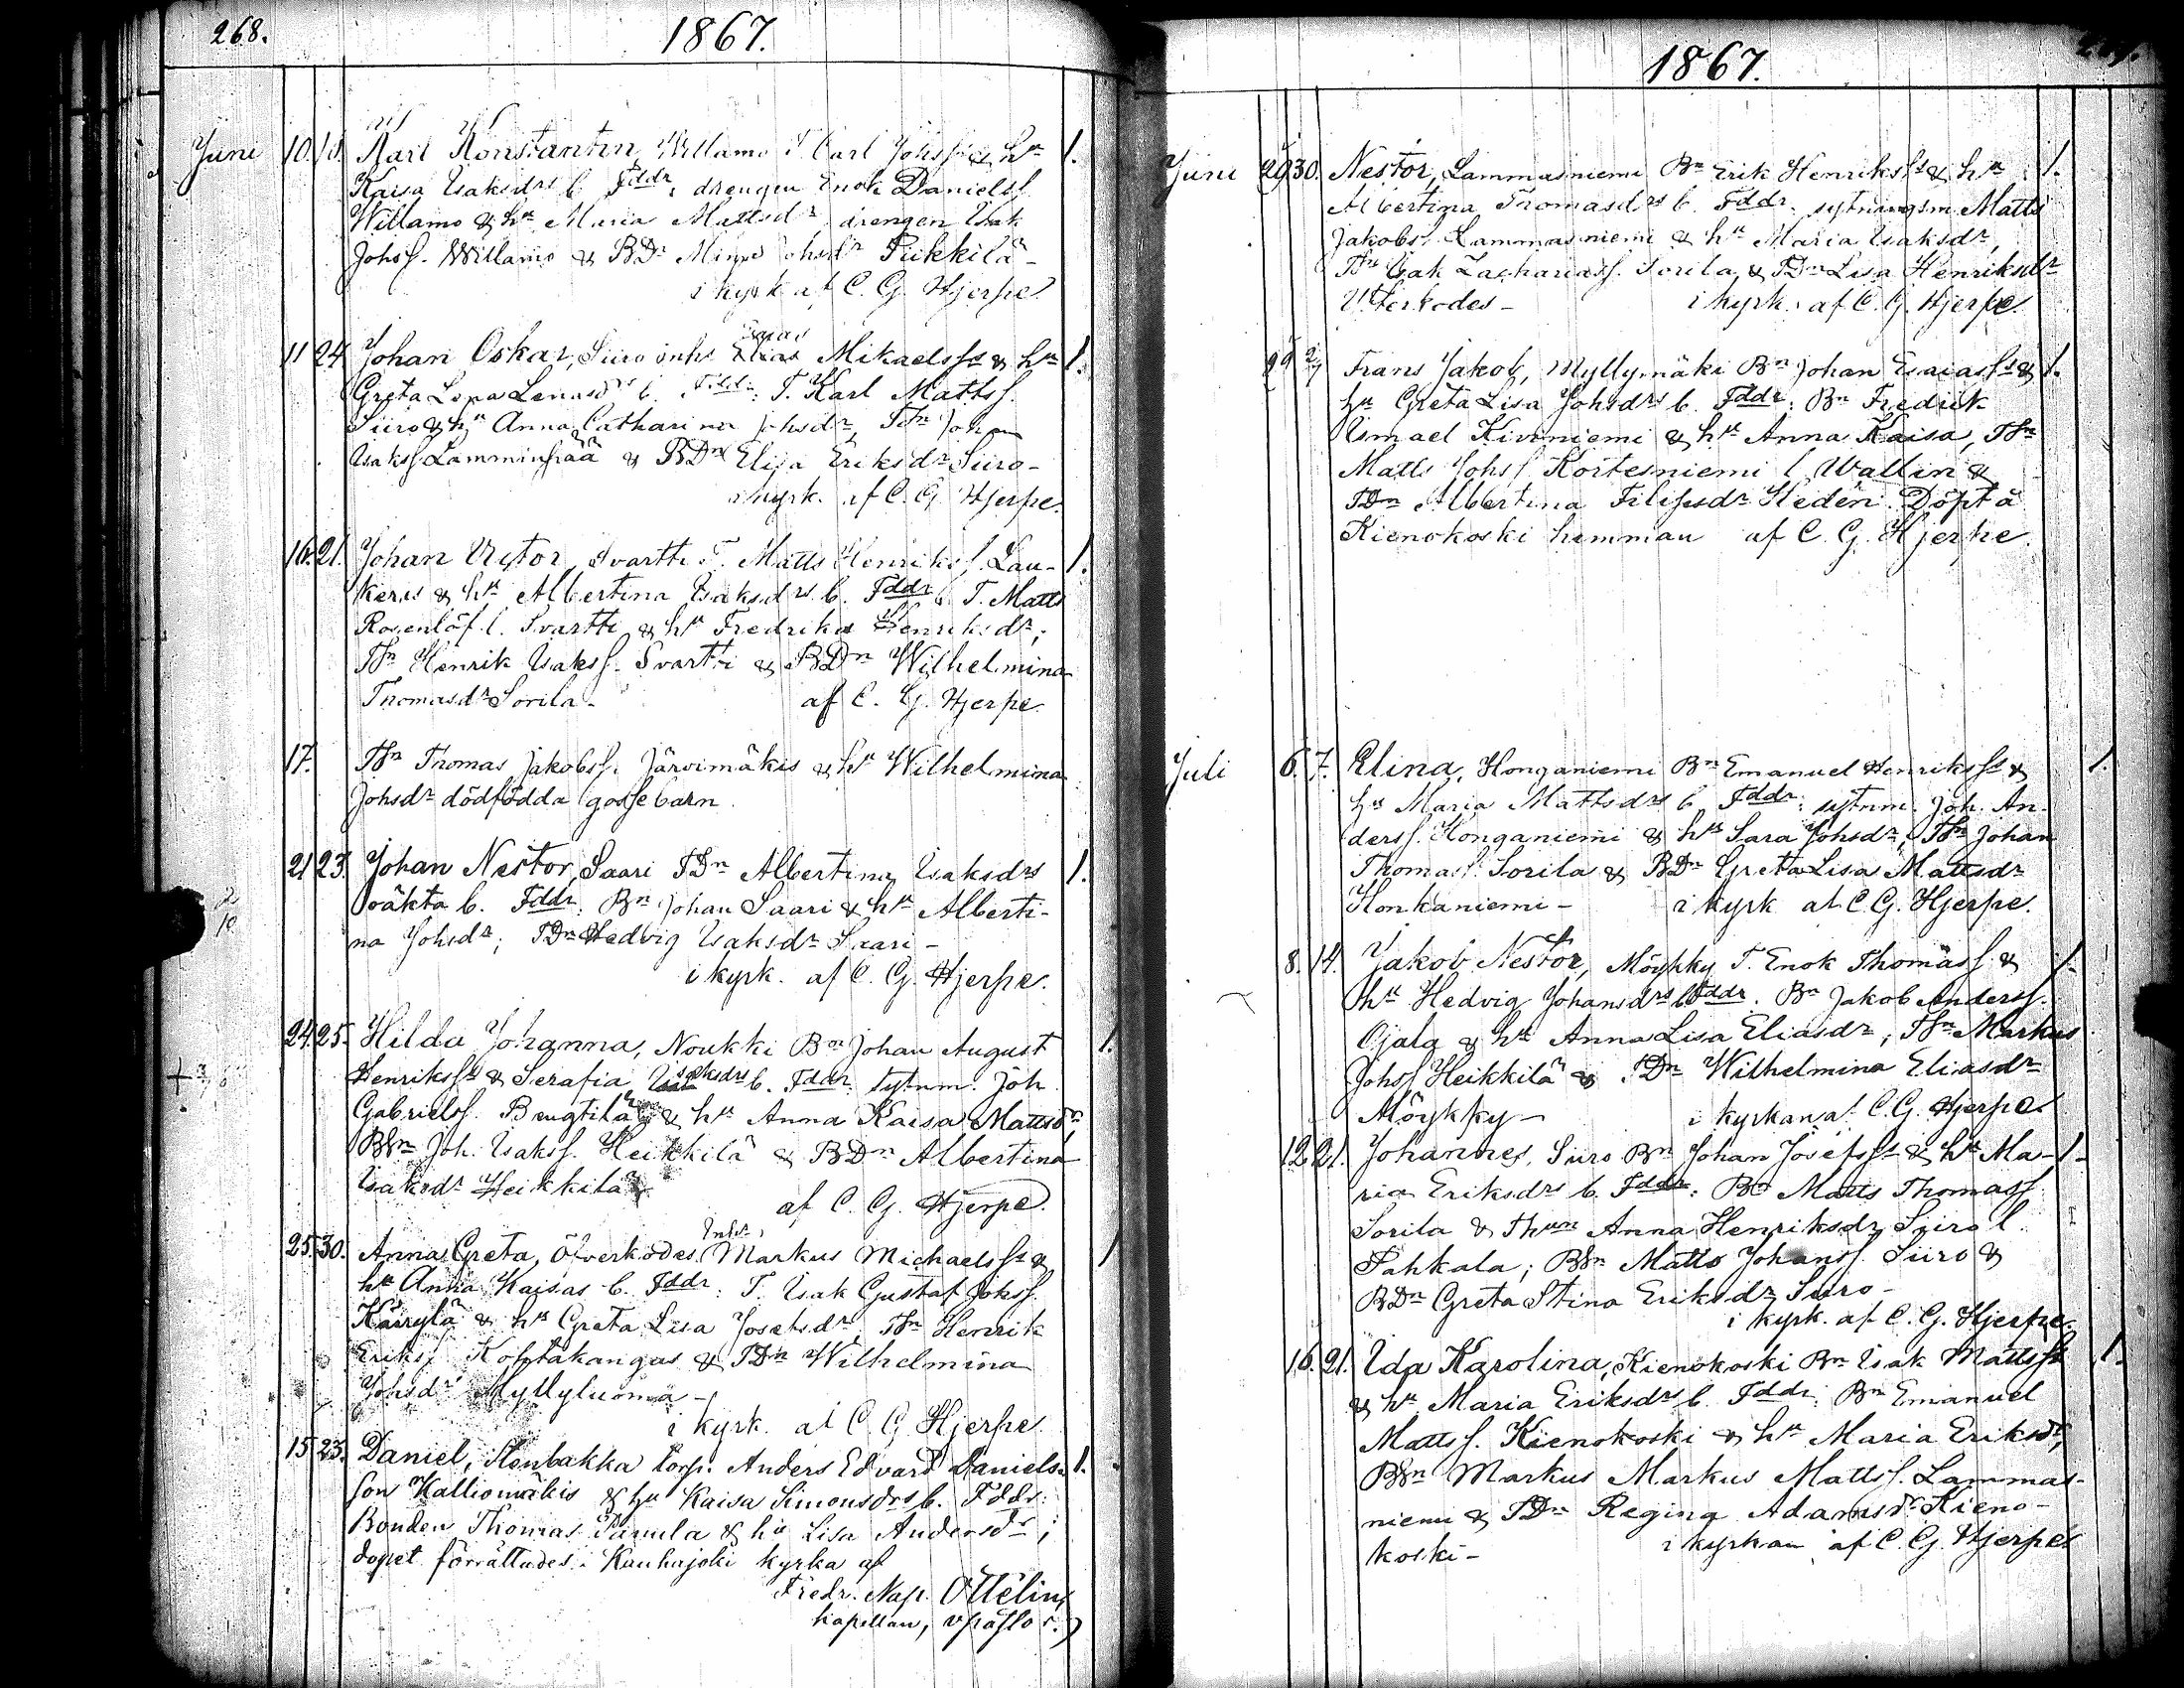 268.
1867.
Juni 10. Karl Konstantin, Willamo T. Carl Johss & hu 1.
Kaisa Isaksdrs b. Fddr: drengen Enok Danielss.
Willamo & hu Maria Mattsdr, drengen Isak
Johss. Willamo & BDn Johsdr Piikkilä -
i kyrk af C. G. Hjerpe.
11 24 Johan Oskar, Siiro inhs Esaias Mikaelss & hu 1.
Greta b. Fddr: T. Karl Mattss.
Siiro & hu Anna Catharina Johsdr, TSn Johan
Isakss Lamminpää & BDn Elisa Eriksdr Siiro -
i kyrk. af C. G. Hjerpe.
16. 21. Johan Victor, Svartti T. Matts Henrikss. Lau- 1.
keris & hu Albertina Isaksdrs b. Fddr T. Matts
Rosenlöf l. Svartti & hu Fredrika Henriksdr;
TSn Henrik Isakss. Svartti & BDn Wilhelmina
Thomasdr Sorila - af C. G. Hjerpe.
17. TSn Thomas Jakobss. Järvimäkis & hu Wilhelmina
Johsdr dödfödda gossebarn.
21 23. Johan Nestor, Saari TDn Albertina Isaksdrs 1.
oäkta b. Fddr: Bn Johan Saari & hu Alberti-
na Johsdr; TDn Hedvig Isaksdr Saari -
i kyrk. af C. G. Hjerpe.
24. 25. Hilda Johanna, Noukki Bn Johan August 1.
Henrikss & Serafia Isaksdrs b. Fddr: Sytnm. Joh.
Gabrielss. Bengtilä & hu Anna Kaisa Mattsdr,
BSn Joh. Isakss. Heikkilä & BDn Albertina
Isaksdr Heikkilä af C. G. Hjerpe.
25. 30. Anna Greta, Öfverkodes Inhs. Markus Michaelss & 1
hu Anna Kaisas b. Fddr: T. Isak Gustaf Johss.
& hu Greta Lisa Josefsdr, TSn Henrik
Erikss Koppakangas & TDn Wilhelmina
Johsdr Myllyluoma -
i kyrk. af C. G. Hjerpe
15 23. Daniel, Stenbakka torp. Anders Edvard Daniels- 1.
son Kalliomäkis & hu Kaisa Simonsdrs b. Fddr:
Bonden Thomas Panula & hu Lisa Andersdr;
dopet förrättades i Kauhajoki kyrka af
Fredr. Nap. Ottelin,
kapellan, v pastor.)
1867.
Juni 29 30. Nestor, Lammasniemi Bn Erik Henrikss & hu 1.
Albertina Thomasdrs b. Fddr: sytningsm. Matts
Jakobss. Lammasniemi & hu Maria Isaksdr,
TSn Isak Zachariass. Sorila & TDn Lisa Henriksdr
- i kyrk. af C. G. Hjerpe.
29 Frans Jakob, Myllymäki Bn Johan Esaiass & 1.
hu Greta Lisa Johsdrs b. Fddr: Bn Fredrik
Ismael Kivniemi & hu Anna Kaisa, TSn
Matts Johss Kortesniemi l. Wallin &
TDn Albertina Filipsdr Hedén. Döpt å
Kienokoski hemman af C. G. Hjerpe.
Juli 6. 7. Elina, Honganiemi Bn Emanuel Henrikss & 1.
hu Maria Mattsdrs b. Fddr: sytnm. Joh. An-
derss. Honganiemi & hu Sara Johsdr; TSn Johan
Thomass. Sorila & BDn Greta Lisa Mattsdr
Honkaniemi - i kyrk af C. G. Hjerpe.
8. 14. Jakob Nestor, Möykky T. Enok Thomass. & 1.
hu Hedvig Johansdrs b. Fddr. Bn Jakob Anderss.
Ojala & hu Anna Lisa Eliasdr; TSn Markus
Johss Heikkilä & TDn Wilhelmina Eliasdr
Möykky - i kyrkan af C. G. Hjerpe.
12 21. Johannes, Siiro Bn Johan Josefss & hu Ma- 1.
ria Eriksdrs b. Fddr: Bn Matts Thomass
Sorila & Anna Henriksdr Siiro l.
Pahkala; BSn Matts Johanss. Siiro &
BDn Greta Stina Eriksdr Siiro -
i kyrk. af C. G. Hjerpe.
16. 21. Ida Karolina, Kienokoski Bn Isak Mattss 1.
& hu Maria Eriksdrs b. Fddr: Bn Emanuel
Mattss. Kienokoski & hu Maria Eriksdr,
BSn Markus Markus Mattss. Lammas-
niemi & TDn Regina Adamsdr Kieno-
koski - i kyrkan af C. G. Hjerpe